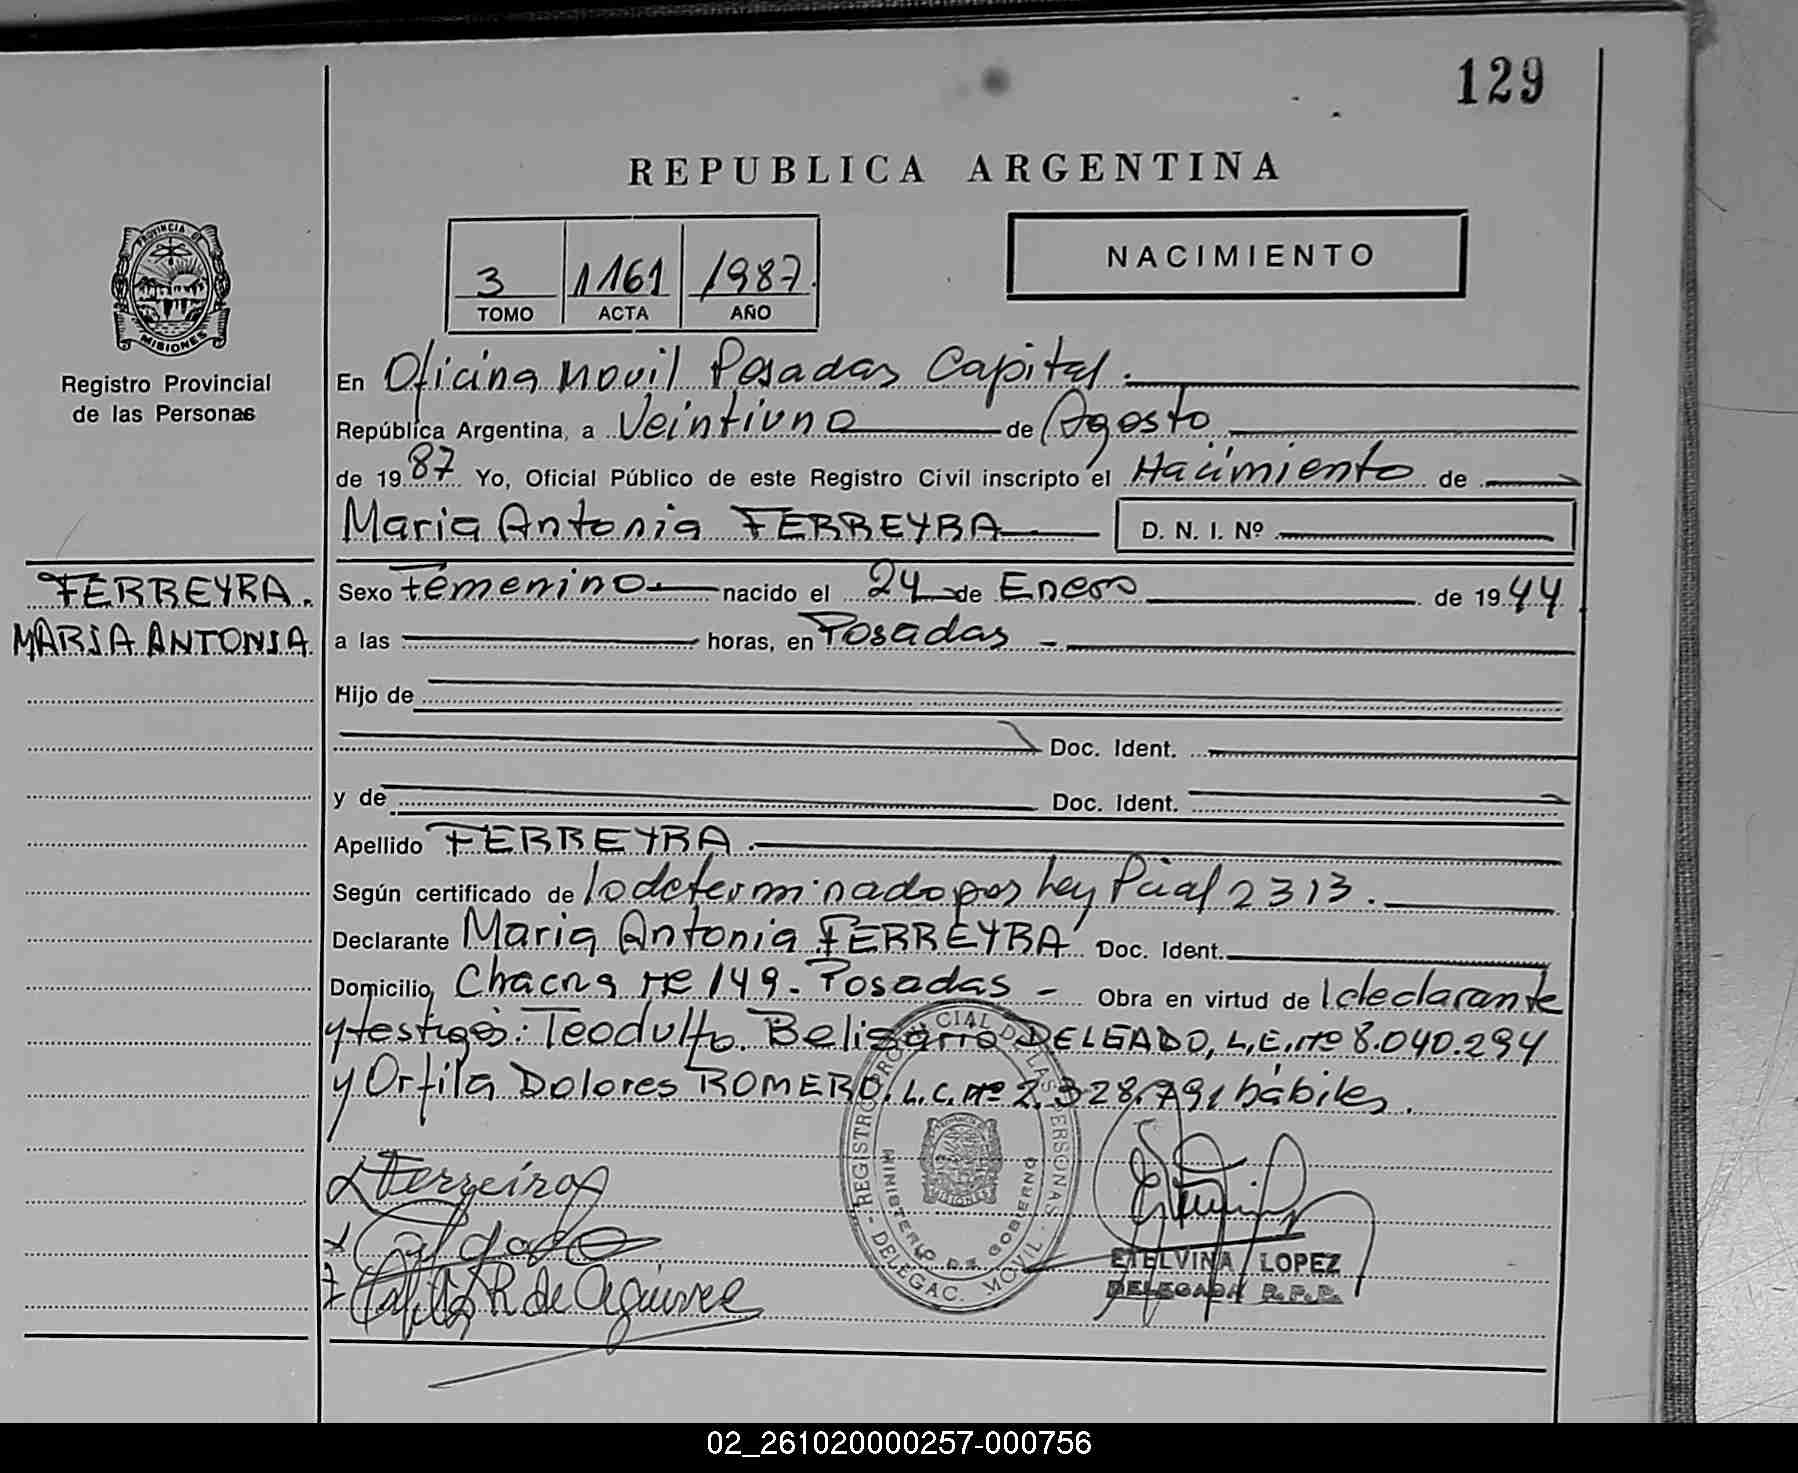 129
REPUBLICA ARGENTINA
PROVINCIA DE
MISIONES
Registro Provincial
de las Personas
3 1161 1987
TOMO ACTA AÑO
NACIMIENTO
En Oficina Movil Posadas Capital.
República Argentina, a Veintiuno de Agosto
de 1987 Yo, Oficial Público de este Registro Civil inscripto el Nacimiento de
Maria Antonia FERREYRA D. N. I. Nº
FERREYRA.
MARIA ANTONIA
Sexo Femenino nacido el 24 de Enero de 1944
a las horas, en Posadas -
Hijo de
Doc. Ident.
y de Doc. Ident.
Apellido FERREYRA.
Según certificado de lo determinado por Ley Pcial 2313.
Declarante Maria Antonia FERREYRA Doc. Ident.
Domicilio Chacra Nº 149 - Posadas - Obra en virtud de l declarante
y testigos: Teodulfo Belisario DELGADO, L.E. Nº 8.040.294
y Orfila Dolores ROMERO, L.C. Nº 2.328.791 hábiles.
REGISTRO PROVINCIAL DE LAS PERSONAS
MINISTERIO DE GOBERNO
MISIONES
- DELEGAC. MOVIL -
Ferreira
R de Aguirre
ETELVINA LOPEZ
DELEGADA R.P.P.
02_261020000257-000756